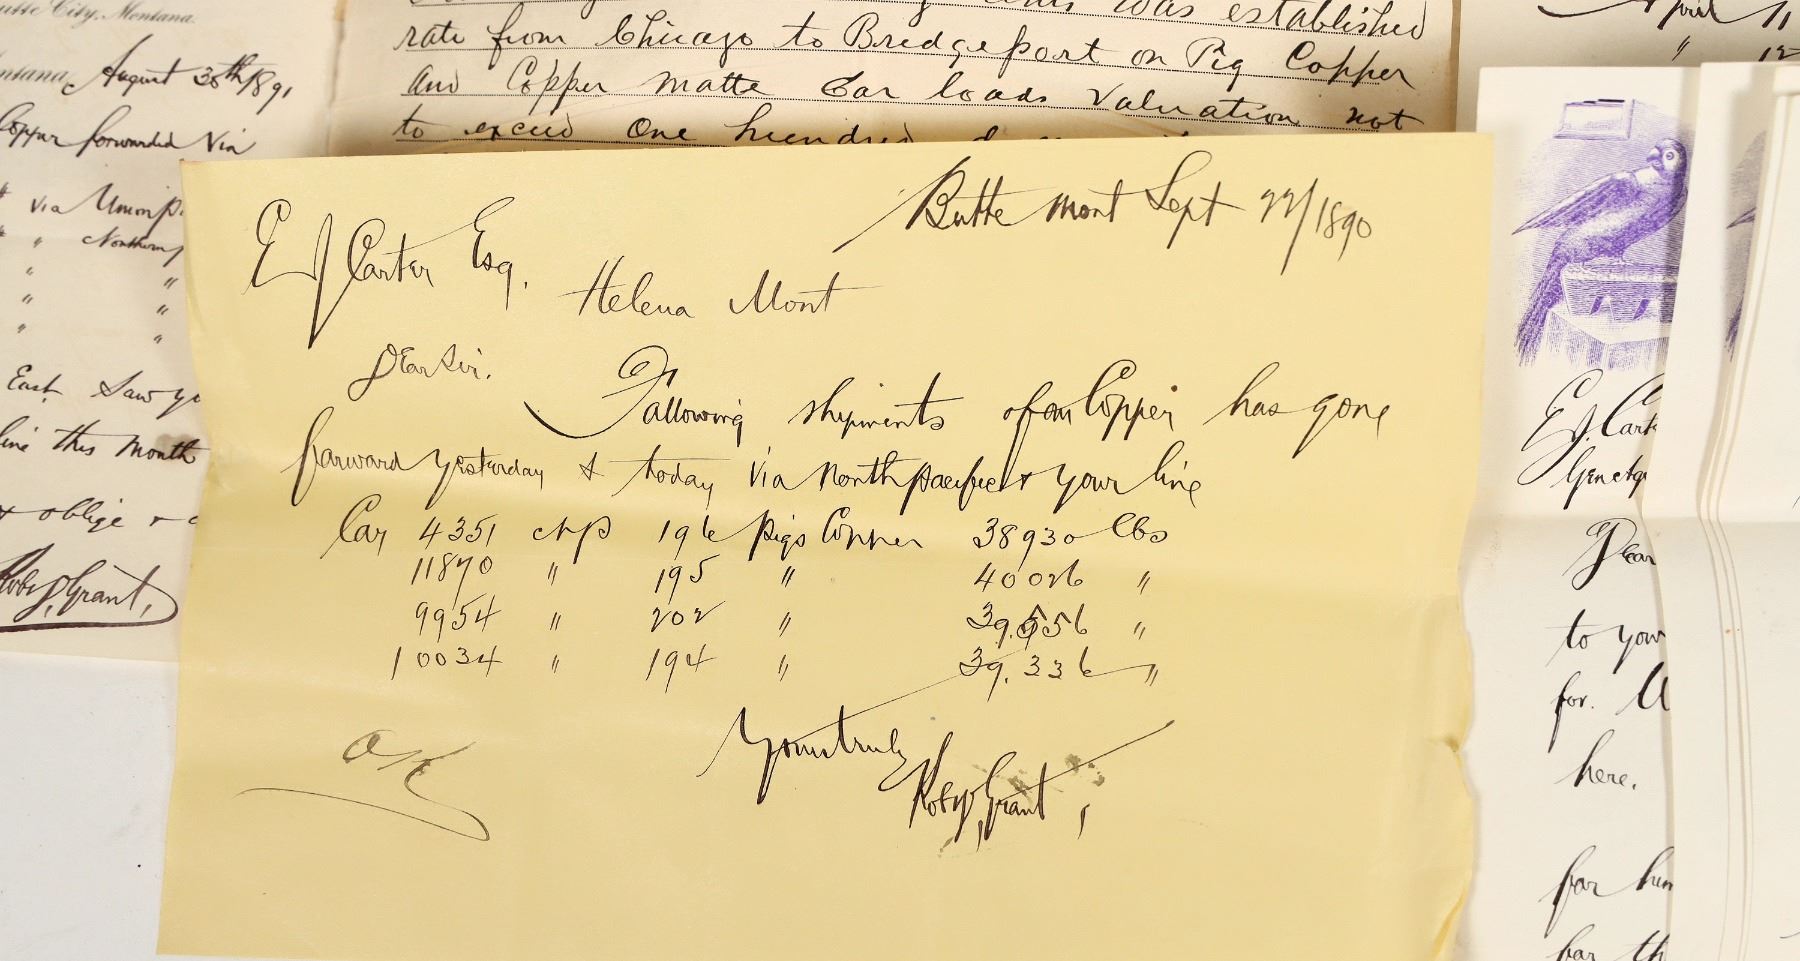 Butte City, Montana.
August 30th 1891
Copper forwarded Via
" via Union P.
" " Northern P
" "
" "
" "
East. Saw yo
line this month
& oblige
Robt Grant,
was established
rate from Chicago to Bridgeport on Pig Copper
and Copper matte Car loads Valuation not
to exceed One hundred
April 11
" 12
Butte Mont Sept 22/1890
E J Carter Esq.
Helena Mont
Dear Sir.
Following shipments of our Copper has gone
forward yesterday & today Via North pacific & your line
Car 4351 196 pigs Copper 38930 lbs
11870 " 195 " 40026 "
9954 " 202 " 39.556 "
10034 " 194 " 39.336 "
Yours truly
Robt Grant,
OK
E J. Cart
Gen Ag
Dear
to your
for. U
here.
for him
for th